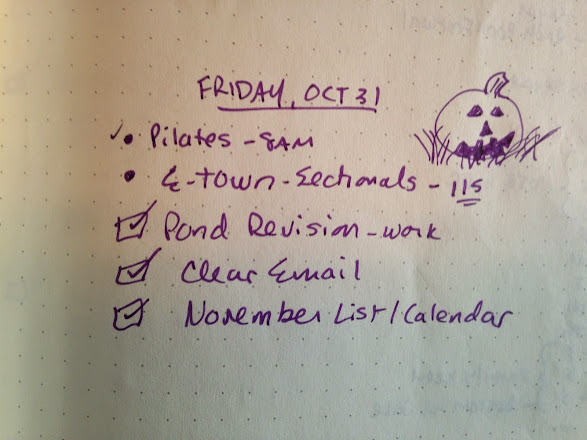 FRIDAY, OCT 31
✓• Pilates - 8AM
• E-Town-Sectionals - 115
☑ Pond Revision - work
☑ Clear Email
☑ November List/Calendar